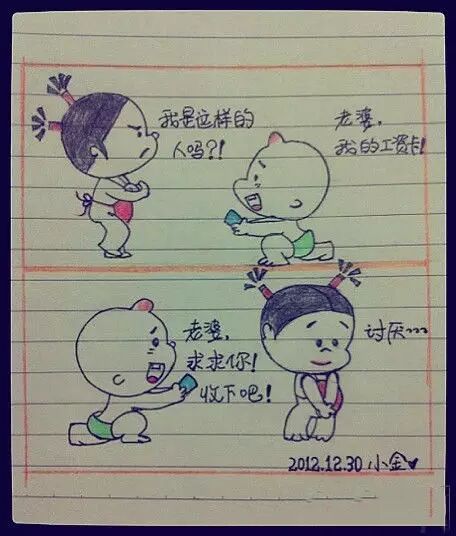 我是这样的
人吗?!
老婆,
我的工资卡!
老婆,
求求你!
收下吧!
讨厌~~~
2012.12.30 小金♥